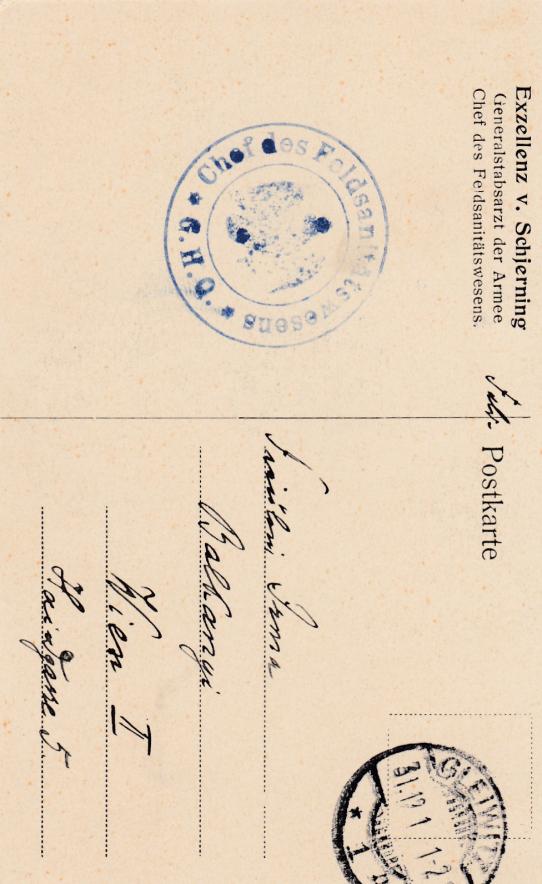 Exzellenz v. Schjerning
Generalstabsarzt der Armee
Chef des Feldsanitätswesens.
Chef des Feldsanitätswesens * G.H.Q. *
Postkarte
Fräulein Irma
Balkanyi
Wien II
Haidgasse 5
GLEIWITZ
31.12.1
1-2
* 1